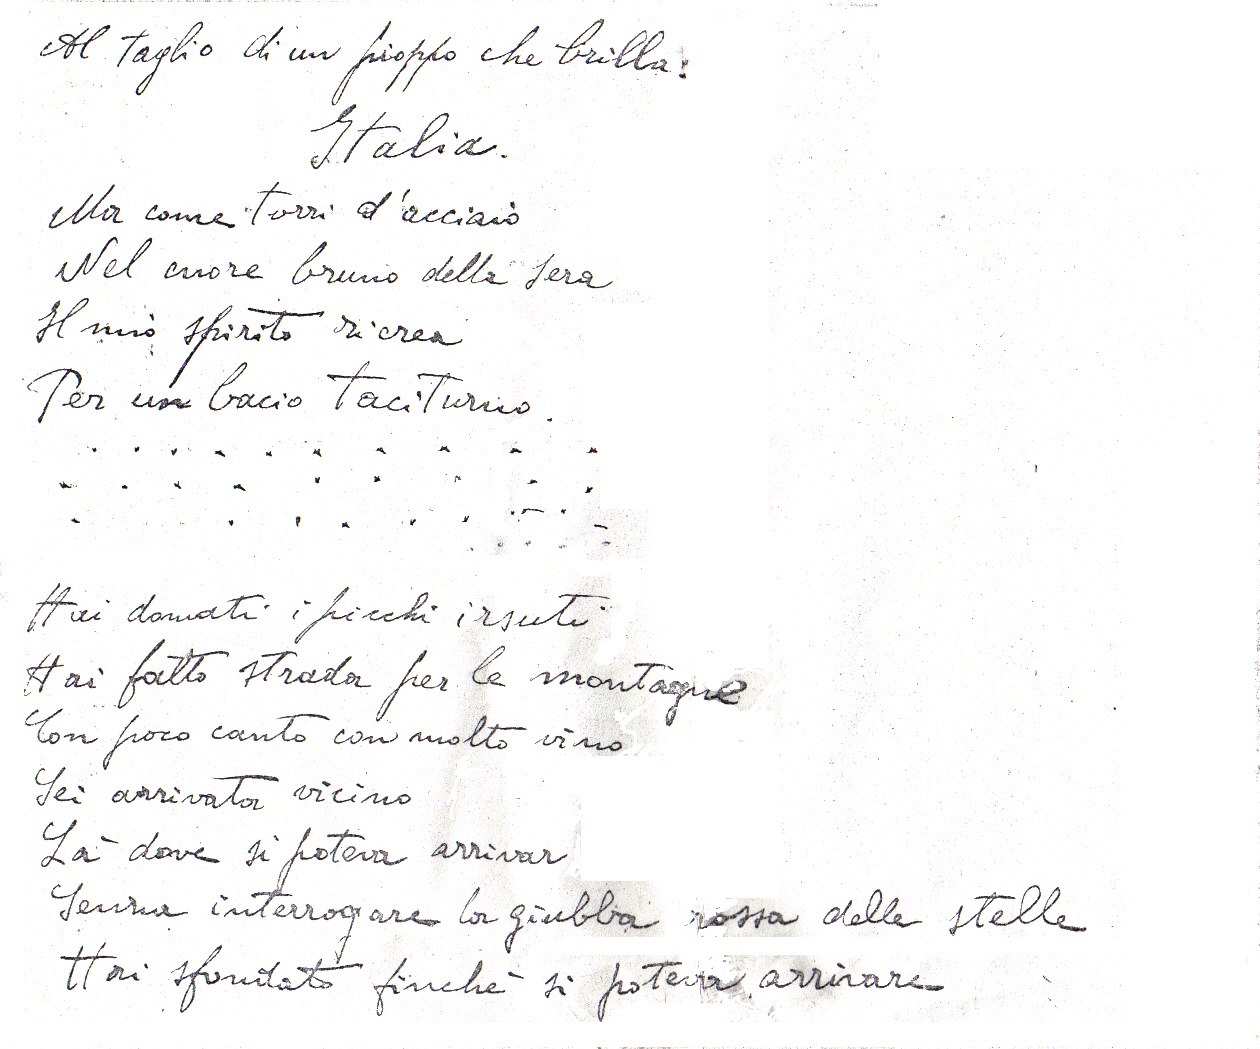 Al taglio di un pioppo che brilla:
Italia.
Ma come torri d'acciaio
Nel cuore bruno della sera
Il mio spirito ricrea
Per un bacio taciturno.
Hai domati i picchi irsuti
Hai fatto strada per le montagne
Con poco canto con molto vino
Sei arrivata vicino
Là dove si poteva arrivar
Senza interrogare la giubba rossa delle stelle
Hai sfondato finchè si poteva arrivare